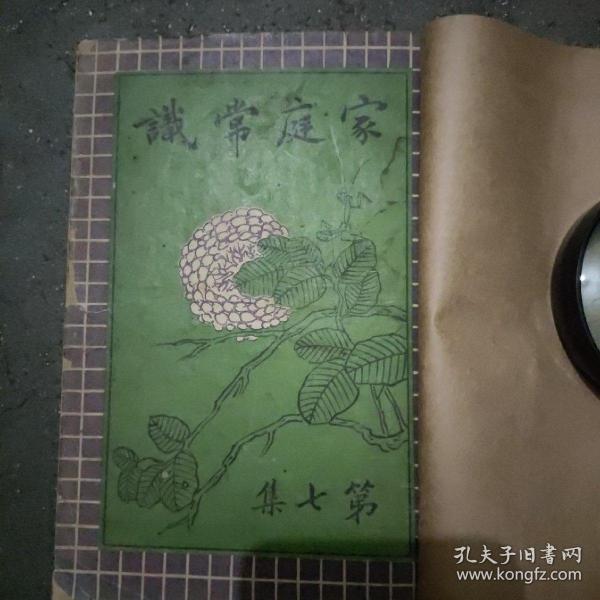 家庭常識
第七集
孔夫子旧書网
www.kongfz.com